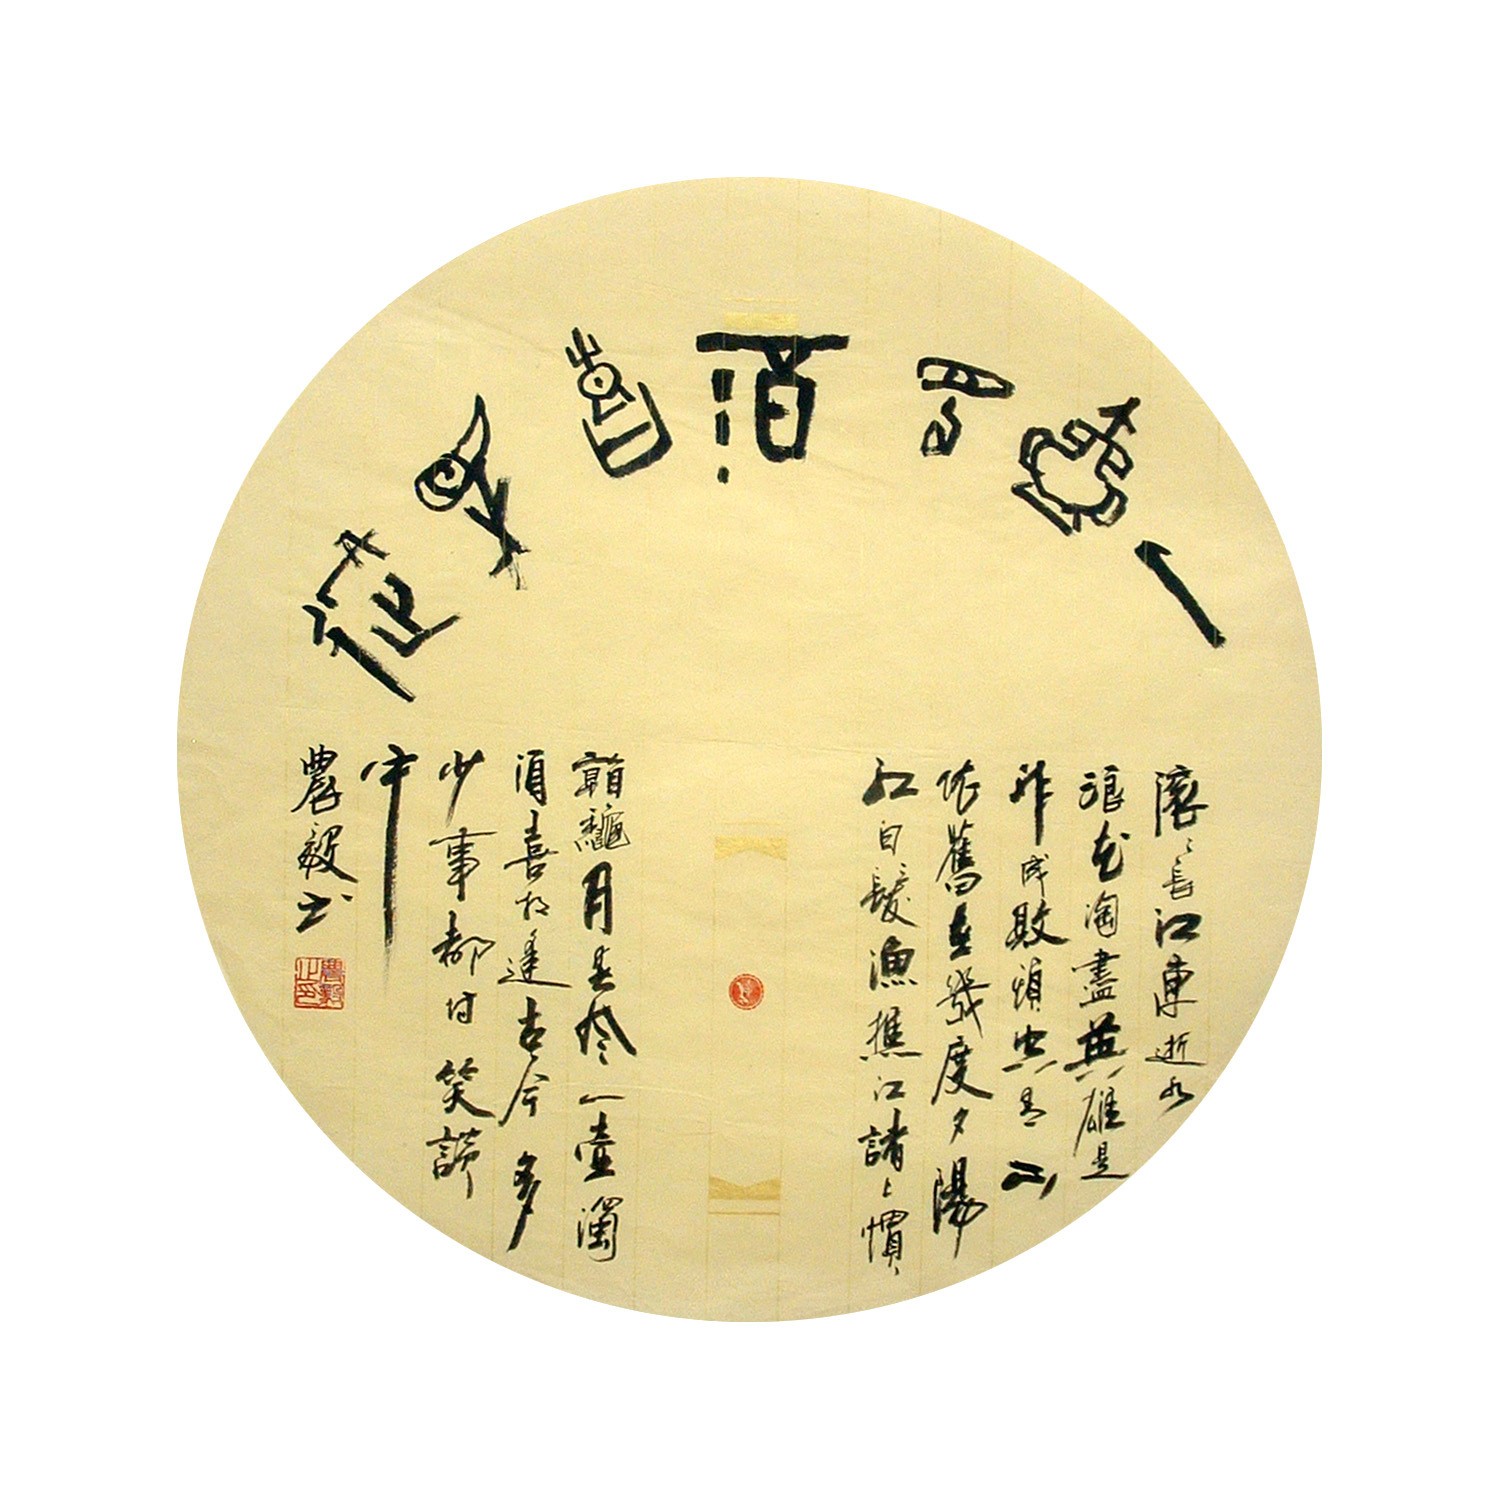 一壺濁酒喜相逢
滾〻長江東逝水
浪花淘盡英雄是
非成敗空青山
依舊在幾度夕陽
紅白髮漁樵江諸上慣
龝月春風一壺濁
酒喜相逢古今多
少事都付笑談
中
農毅書
農毅之印